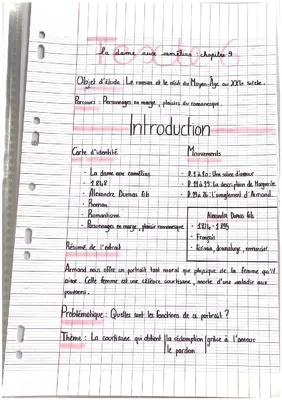 Texte 6
La dame aux camélias : chapitre 9
Objet d'étude : Le roman et le récit du Moyen-Âge au XXIe siècle.
Parcours : Personnages en marge, plaisirs du romanesque.
Introduction
Carte d'identité
- La dame aux camélias
- 1848
- Alexandre Dumas fils
- Roman
- Romantisme
- Personnages en marge, plaisir romanesque
Mouvements
- P. 1 à 10 :
- P. 11 à 19 : La description de Marguerite
- P. 19 à 26 : L'aveuglement d'Armand
Alexandre Dumas fils
- 1824 - 1895
- Français
- Écrivain, dramaturge, romancier
Résumé de l'extrait
Armand nous offre un portrait tant moral que physique de la femme qu'il
aime. Cette femme est une célèbre courtisane, morte d'une maladie aux
poumons.
Problématique : Quelles sont les fonctions de ce portrait ?
Thème : La courtisane qui obtient la rédemption grâce à l'amour
le pardon